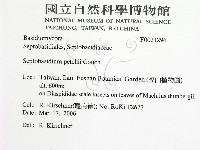 國立自然科學博物館
NATIONAL MUSEUM OF NATURAL SCIENCE
TAICHUNG, TAIWAN, R.O.CHINA
Basidiomycota
Septobasidiales, Septobasidiaceae
Septobasidium petchii Couch
Loc: Taiwan, Fushan Botanical Garden
alt. 600m
on Diaspididae scale insects on leaves of Machilus thunbergii
Col: R. Kirschner No: RoKi
Date: Mar. 17, 2006
Det: R. Kirschner